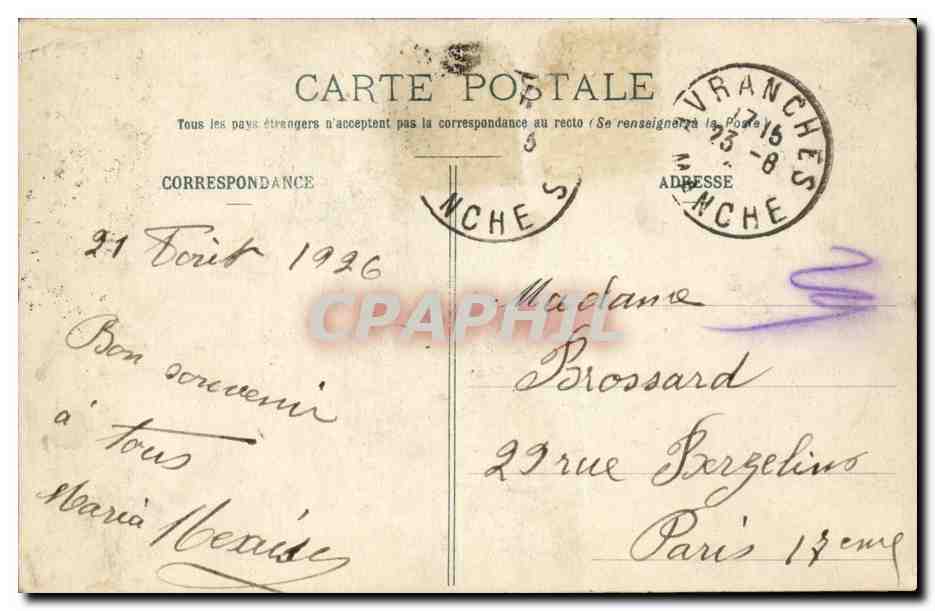 CARTE POSTALE
Tous les pays étrangers n'acceptent pas la correspondance au recto (Se renseigner à la Poste)
CORRESPONDANCE
ADRESSE
AVRANCHES
17-15
23-8
MANCHE
NCHES
21 Août 1926
Bon souvenir
à tous
Maria
Madame
Brossard
29 rue Berzelius
Paris 17eme
CPAPHIL